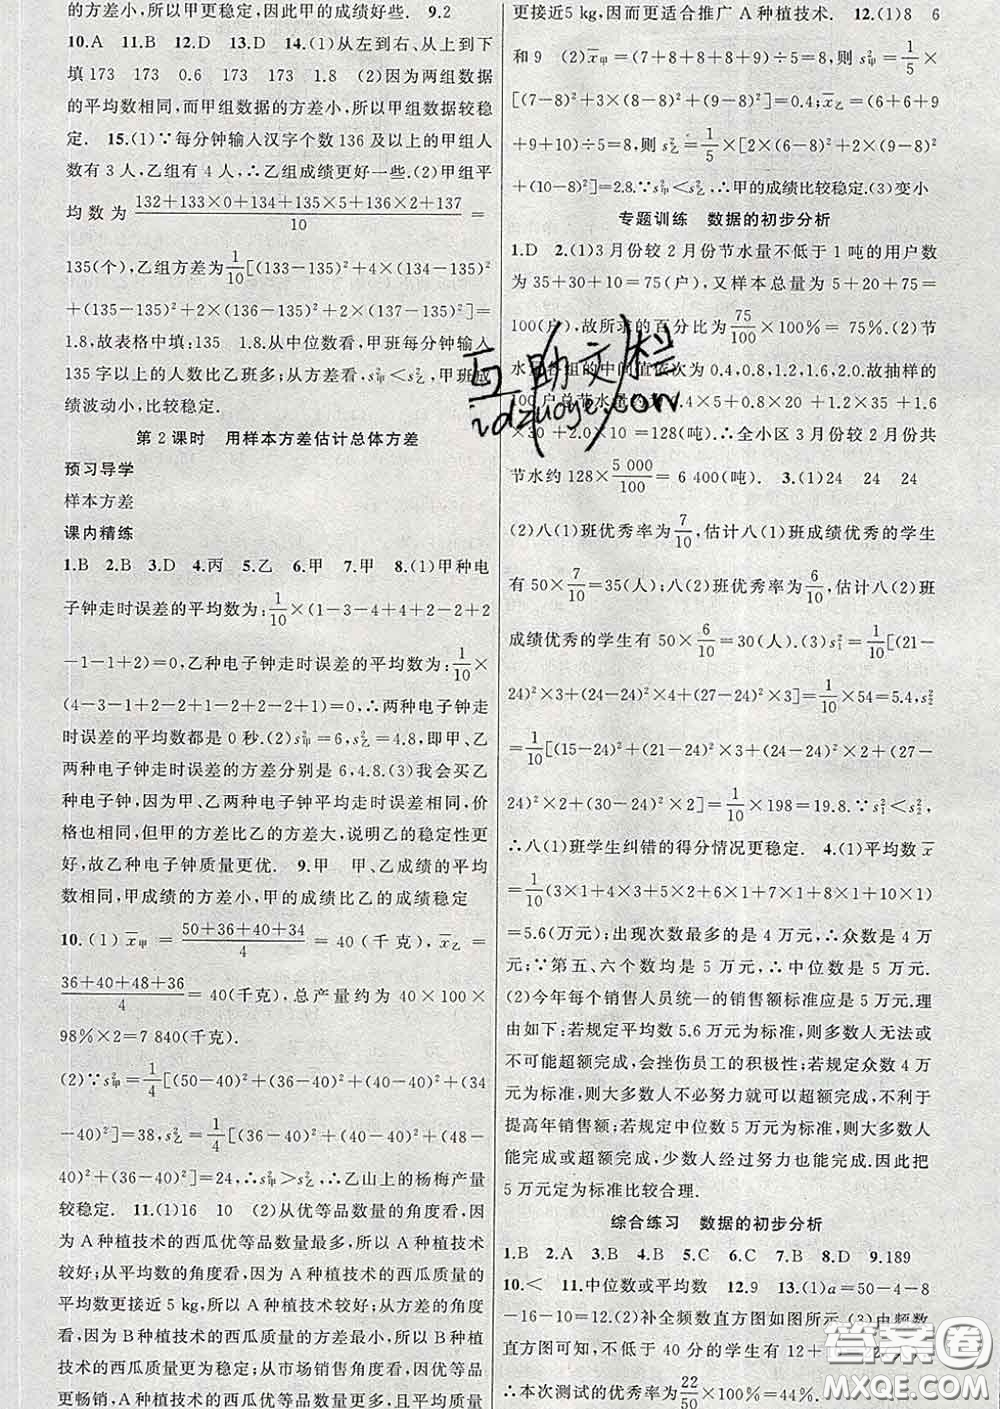 的方差小,所以甲更稳定,因此甲的成绩好些. 9.2
10.A 11.B 12.D 13.D 14.(1)从左到右、从上到下
填173 173 0.6 173 173 1.8 (2)因为两组数据
的平均数相同,而甲组数据的方差小,所以甲组数据较稳
定. 15.(1)∵每分钟输入汉字个数136及以上的甲组人
数有3人,乙组有4人,∴乙组成绩更好一些.(2)甲组平
均数为 (132+133×0+134+135×5+136×2+137)/10 =
135(个),乙组方差为 1/10[(133-135)²+4×(134-135)²
+(135-135)²+2×(136-135)²+2×(137-135)²]=
1.8,故表格中填:135 1.8.从中位数看,甲班每分钟输入
135字以上的人数比乙班多;从方差看,s²甲<s²乙,甲班成
绩波动小,比较稳定.
第2课时 用样本方差估计总体方差
预习导学
样本方差
课内精练
1.B 2.B 3.D 4.丙 5.乙 6.甲 7.甲 8.(1)甲种电
子钟走时误差的平均数为:1/10×(1-3-4+4+2-2+2
-1-1+2)=0,乙种电子钟走时误差的平均数为:1/10×
(4-3-1+2-2+1-2-2+2+1)=0,∴两种电子钟走
时误差的平均数都是0秒.(2)s²甲=6,s²乙=4.8,即甲、乙
两种电子钟走时误差的方差分别是6,4.8.(3)我会买乙
种电子钟,因为甲、乙两种电子钟平均走时误差相同,价
格也相同,但甲的方差比乙的方差大,说明乙的稳定性更
好,故乙种电子钟质量更优. 9.甲 甲、乙成绩的平均
数相同,甲成绩的方差小,甲的成绩比乙的成绩稳定
10.(1) x̄甲 = (50+36+40+34)/4 = 40(千克), x̄乙 =
(36+40+48+36)/4 = 40(千克),总产量约为 40×100×
98%×2=7 840(千克).
(2)∵s²甲=1/4[(50-40)²+(36-40)²+(40-40)²+(34
-40)²]=38,s²乙=1/4[(36-40)²+(40-40)²+(48-
40)²+(36-40)²]=24,∴s²甲>s²乙,∴乙山上的杨梅产量
较稳定. 11.(1)16 10 (2)从优等品数量的角度看,因
为A种植技术的西瓜优等品数量最多,所以A种植技术
较好;从平均数的角度看,因A种植技术的西瓜质量的
平均数更接近5 kg,所以A种植技术较好;从方差的角度
看,因为B种植技术的西瓜质量的方差最小,所以B种植
技术的西瓜质量更为稳定;从市场销售角度看,因优等品
更畅销,A种植技术的西瓜优等品数量更多,且平均质量
更接近5 kg,因而更适合推广A种植技术. 12.(1)8 6
和9 (2)x̄甲=(7+8+8+8+9)÷5=8,则 s²甲=1/5×
[(7-8)²+3×(8-8)²+(9-8)²]=0.4;x̄乙=(6+6+9
+9+10)÷5=8,则 s²乙=1/5×[2×(6-8)²+2×(9-8)²
+(10-8)²]=2.8.∵s²甲<s²乙,∴甲的成绩比较稳定.(3)变小
专题训练 数据的初步分析
1.D 2.(1)3月份较2月份节水量不低于1吨的用户数
为35+30+10=75(户),又样本总量为5+20+75=
100(户),故所求的百分比为 75/100×100%= 75%.(2)节
水量各组的中间值依次为0.4,0.8,1.2,1.6,2.0,故抽样的
100户总节水量约为0.4×5+0.8×20+1.2×35+1.6×
30+2.0×10=128(吨).全小区3月份较2月份共
节水约128×5 000/100=6 400(吨). 3.(1)24 24 24
(2)八(1)班优秀率为7/10,估计八(1)班成绩优秀的学生
有50×7/10=35(人);八(2)班优秀率为6/10,估计八(2)班
成绩优秀的学生有50×6/10=30(人).(3)s²₁=1/10[(21-
24)²×3+(24-24)²×4+(27-24)²×3]=1/10×54=5.4,s²₂
=1/10[(15-24)²+(21-24)²×3+(24-24)²×2+(27-
24)²×2+(30-24)²×2]=1/10×198=19.8.∵s²₁<s²₂,
∴八(1)班学生纠错的得分情况更稳定. 4.(1)平均数x̄
=1/10(3×1+4×3+5×2+6×1+7×1+8×1+10×1)
=5.6(万元);出现次数最多的是4万元,∴众数是4万
元;∵第五、六个数均是5万元,∴中位数是5万元.
(2)今年每个销售人员统一的销售额标准应是5万元.理
由如下:若规定平均数5.6万元为标准,则多数人无法或
不可能超额完成,会挫伤员工的积极性;若规定众数4万
元为标准,则大多数人不必努力就可以超额完成,不利于
提高年销售额;若规定中位数5万元为标准,则大多数人
能完成或超额完成,少数人经过努力也能完成.因此把
5万元定为标准比较合理.
综合练习 数据的初步分析
1.B 2.A 3.B 4.B 5.C 6.C 7.B 8.D 9.189
10.< 11.中位数或平均数 12.9 13.(1)a=50-4-8
-16-10=12.(2)补全频数直方图如图所示.(3)由频数
直方图可知,不低于40分的学生有12+10=22
∴本次测试的优秀率为22/50×100%=44%.
互助文档
idzuoye.com
答案圈
MXQE.COM